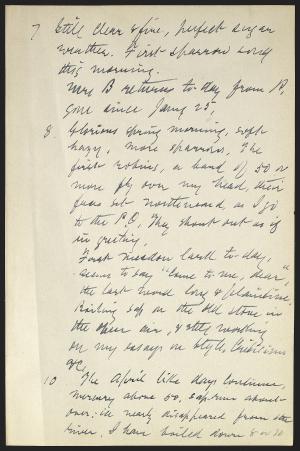 7 Still clear & fine, perfect sugar
weather. First sparrow song
this morning.
Mrs B returns to-day from P,
gone since Jany 25,
8. Glorious spring morning, soft
hazy, more sparrows, The
first robins, a band of 50 or
more fly over my head, their
faces set northward as I go
to the P.O, They shout out as if
in greeting,
First meadow lark to-day,
seems to say "Come to me, dear",
the last word long & plaintive,
sap on the old stove in
the open air, & still working
on my essays on Style, Criticism
&c,
10 The April like days continue,
mercury above 50, sap run about
over; ice nearly disappeared from the
river, I have boiled down 8 or 10